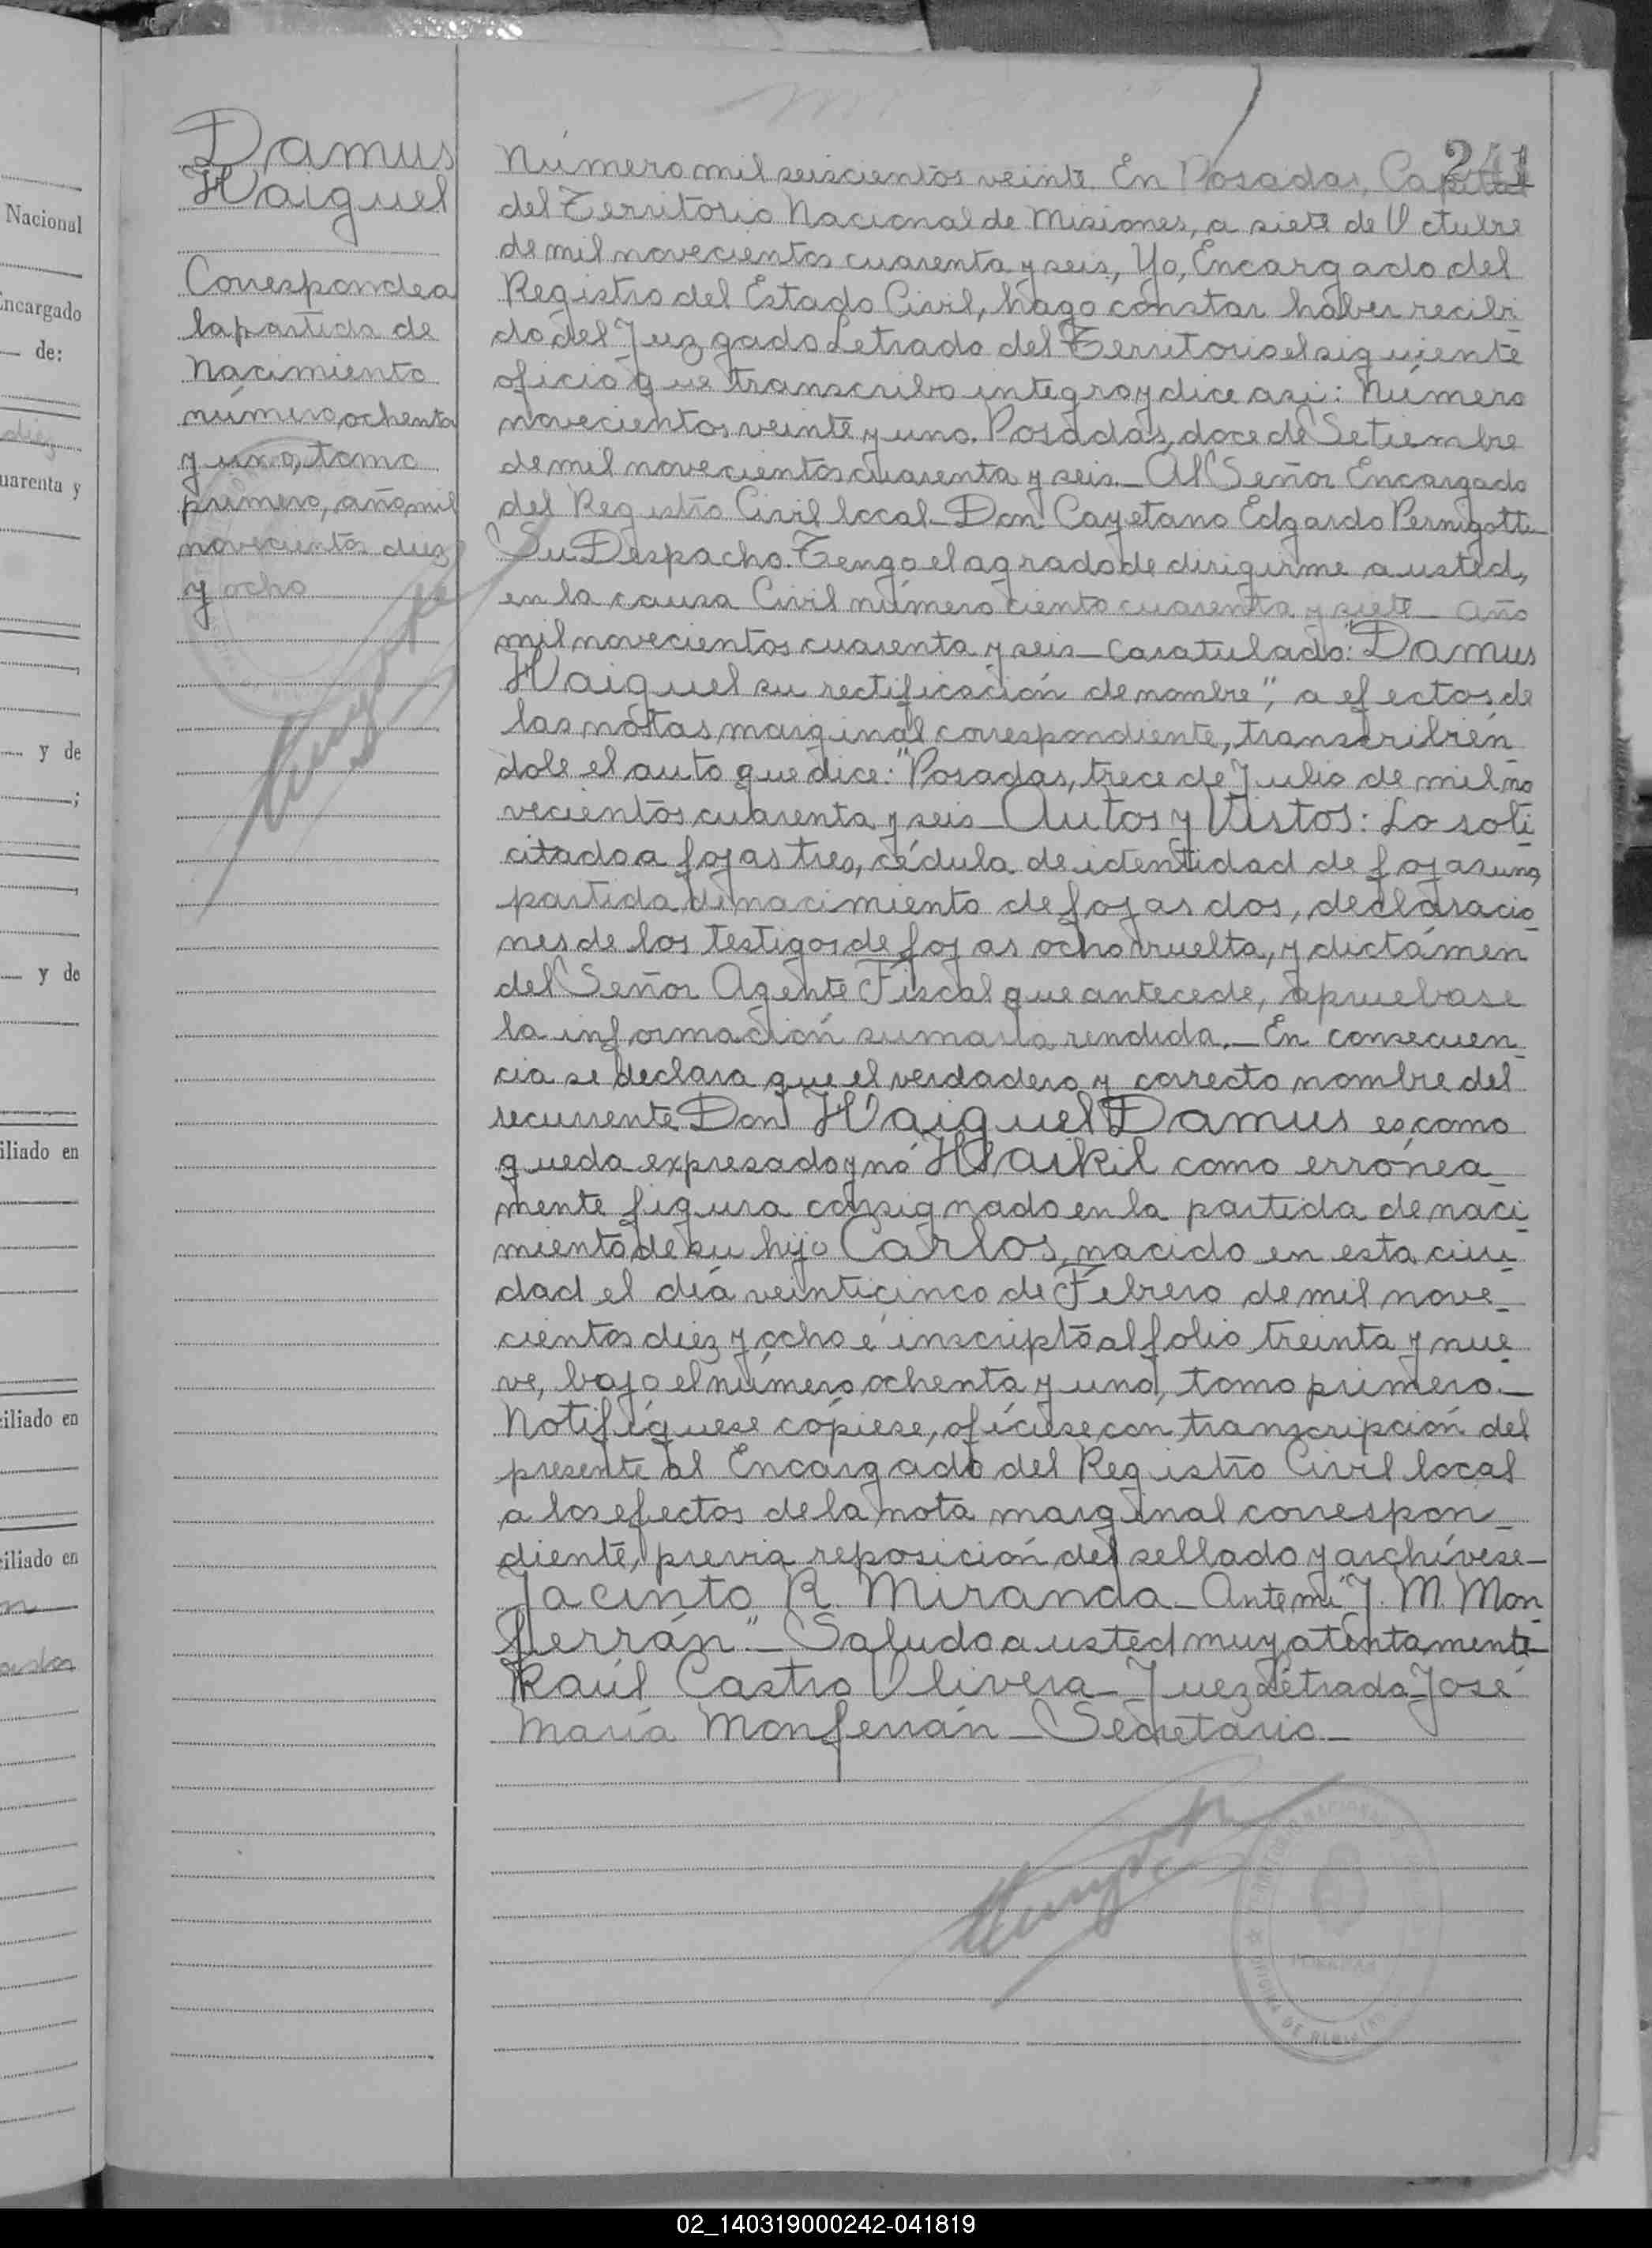 241
Damus
Haiguel
Corresponde a
la partida de
Nacimiento
número, ochenta
y uno, tomo
primero, año mil
novecientos diez
y ocho
Número mil seiscientos veinte. En Posadas, Capital
del Territorio Nacional de Misiones, a siete de Octubre
de mil novecientos cuarenta y seis, Yo, Encargado del
Registro del Estado Civil, hago constar haber recibi-
do del Juzgado Letrado del Territorio el siguiente
oficio que transcribo integro y dice asi: Número
novecientos veinte y uno. Posadas, doce de Setiembre
de mil novecientos cuarenta y seis._ Al Señor Encargado
del Registro Civil local_ Don Cayetano Edgardo Pernigotti_
Su Despacho. Tengo el agrado de dirigirme a usted,
en la causa Civil número ciento cuarenta y siete_ año
mil novecientos cuarenta y seis_ caratulado: "Damus
Haiguel su rectificación de nombre", a efectos de
las notas marginal correspondiente, transcribien-
dole el auto que dice: "Posadas, trece de Julio de mil no
vecientos cuarenta y seis_ Autos y Vistos: Lo soli-
citado a fojas tres, cédula de identidad de fojas uno,
partida de nacimiento de fojas dos, declaracio-
nes de los testigos de fojas ocho vuelta, y dictámen
del Señor Agente Fiscal que antecede, apruebase
la información sumaria rendida._ En consecuen-
cia se declara que el verdadero y correcto nombre del
recurrente Don Haiguel Damus es como
queda expresado y nó Haikil como errónea-
mente figura consignado en la partida de naci-
miento de su hijo Carlos, nacido en esta ciu-
dad el día veinticinco de Febrero de mil nove-
cientos diez y ocho é inscripto al folio treinta y nue-
ve, bajo el número ochenta y uno, tomo primero._
Notifíquese cópiese, ofíciese con transcripción del
presente al Encargado del Registro Civil local
a los efectos de la nota marginal correspon-
diente, previa reposición del sellado y archívese_
Jacinto R. Miranda_ Ante mí "J. M. Mon-
ferrán"._ Saludo a usted muy atentamente_
Raúl Castro Olivera_ Juez Létrado_ José
María Monferrán_ Secretario_
Nacional
Encargado
de:
diez
uarenta y
y de
y de
iliado en
ciliado en
ciliado en
POSADAS
02_140319000242-041819